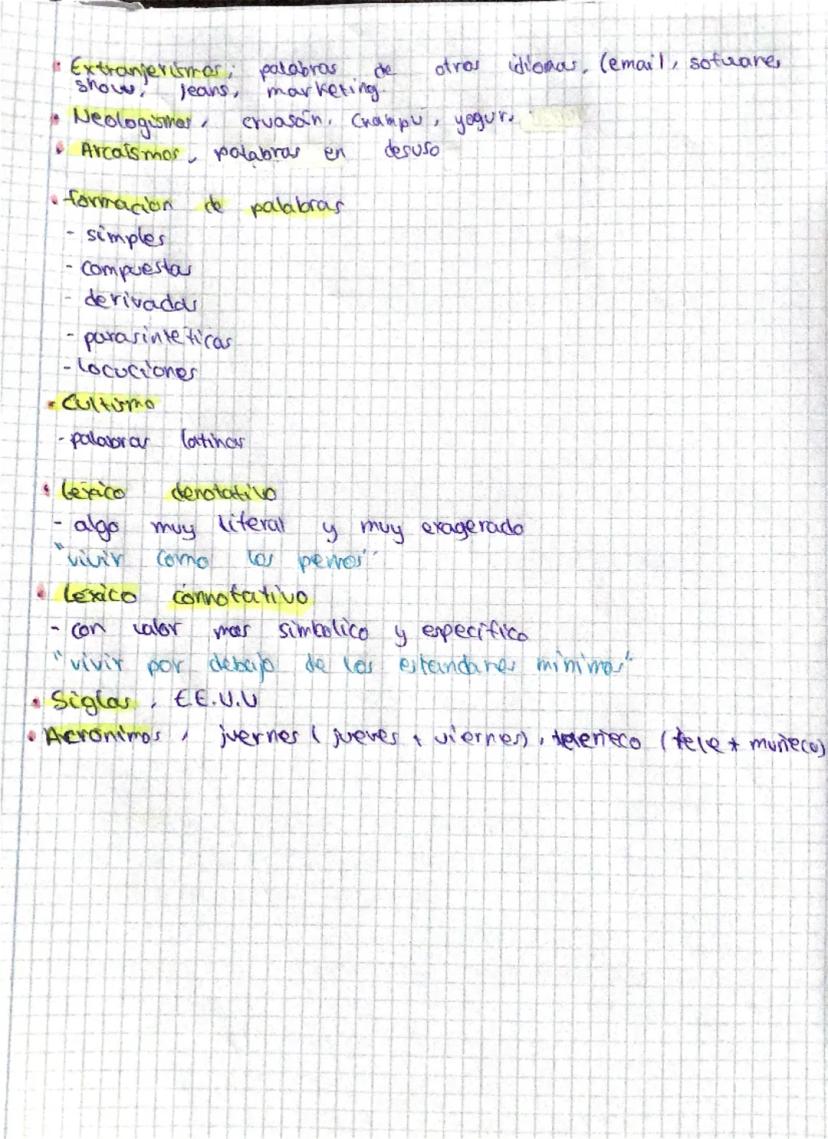 • Extranjerismos; palabras de otros idiomas. (email, sofware,
show, jeans, marketing
• Neologismos, cruasán, champú, yogur.
• Arcaísmos, palabras en desuso
• formación de palabras
- simples
- compuestas
- derivadas
- parasinteticas
- locuciones
• Cultismo
- palabras latinas
• Léxico denotativo
- algo muy literal y muy exagerado
"vivir como los perros"
• Léxico connotativo
- con valor mas simbolico y especifico
"vivir por debajo de los estandares minimos"
• Siglas, EE.U.U
• Acronimos, juernes (jueves + viernes), teleñeco (tele + muñeco)